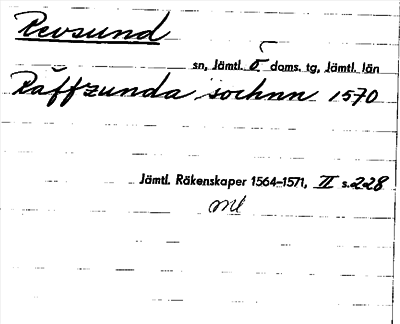 Revsund
sn, Jämtl. ö. doms. tg, Jämtl. län
Räffzunda sochnn 1570
Jämtl. Räkenskaper 1564-1571, II s. 228